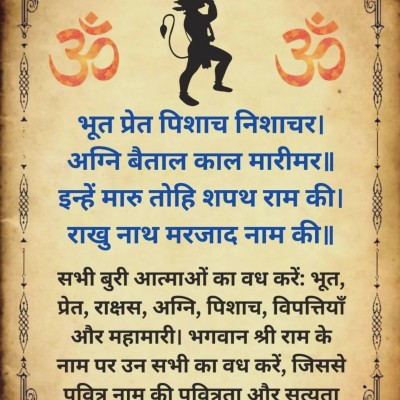 ॐ ॐ
भूत प्रेत पिशाच निशाचर।
अग्नि बैताल काल मारीमर॥
इन्हें मारु तोहि शपथ राम की।
राखु नाथ मरजाद नाम की॥
सभी बुरी आत्माओं का वध करें: भूत,
प्रेत, राक्षस, अग्नि, पिशाच, विपत्तियाँ
और महामारी। भगवान श्री राम के
नाम पर उन सभी का वध करें, जिससे
पवित्र नाम की पवित्रता और सत्यता